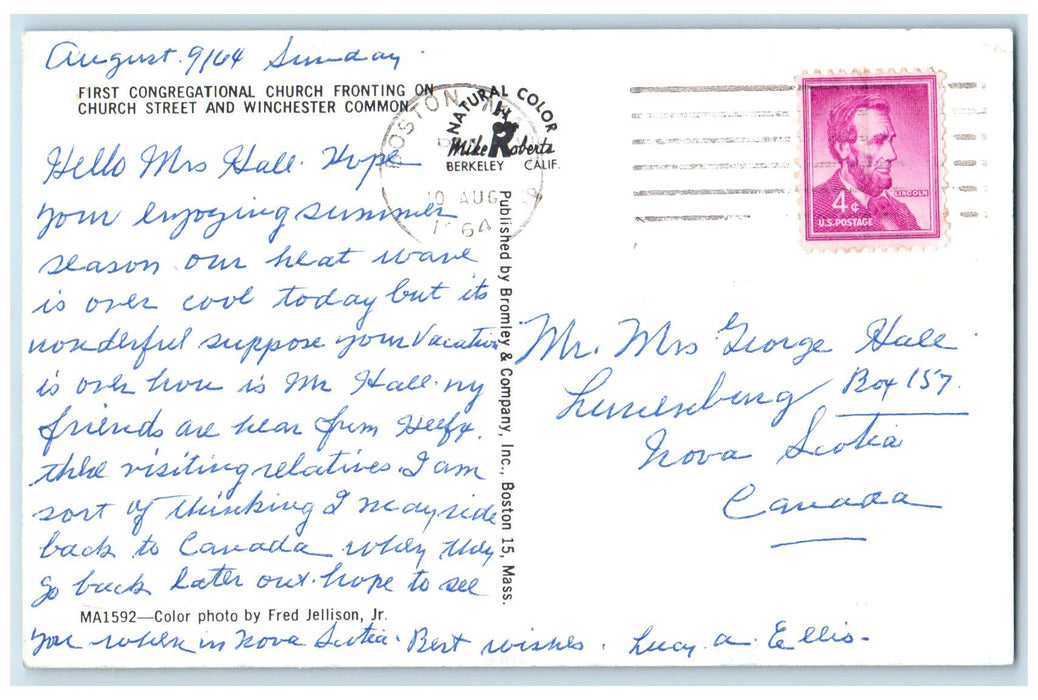 August 9/64 Sunday
FIRST CONGREGATIONAL CHURCH FRONTING ON
CHURCH STREET AND WINCHESTER COMMON.
Hello Mrs Hall. Hope
your enjoying summer
season our heat wave
is over cool today but its
wonderful suppose your Vacation
is over how is Mr Hall. my
friends are hear from
visiting relatives. I am
sort of thinking I may ride
back to Canada when they
go back later out. hope to see
MA1592—Color photo by Fred Jellison, Jr.
you when in Nova Scotia. Best wishes. Lucy a. Ellis-
BOSTON
AUG
1964
NATURAL COLOR
Mike Roberts
BERKELEY CALIF.
Published by Bromley & Company, Inc., Boston 15, Mass.
LINCOLN
4¢
U.S. POSTAGE
Mr. Mrs George Hall
Lunenburg Box 157.
Nova Scotia
Canada